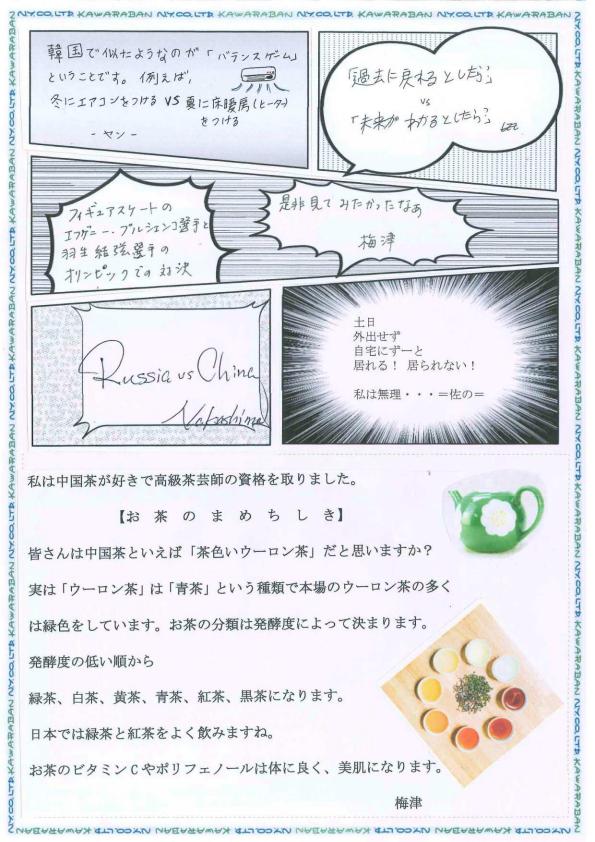 韓国で似たようなのが「バランスゲーム」
ということです。例えば、
冬にエアコンをつける VS 夏に床暖房(ヒーター)
をつける
- ヤン -
「過去に戻れるとしたら?」
vs
「未来が わかるとしたら?」
フィギュアスケートの
エフゲニー・プルシェンコ選手と
羽生結弦選手の
オリンピックでの対決
是非見てみたかったなあ
梅津
Russia vs China
Nakashima
土日
外出せず
自宅にずーと
居れる! 居られない!
私は無理・・・=佐の=
私は中国茶が好きで高級茶芸師の資格を取りました。
【お 茶 の ま め ち し き】
皆さんは中国茶といえば「茶色いウーロン茶」だと思いますか?
実は「ウーロン茶」は「青茶」という種類で本場のウーロン茶の多く
は緑色をしています。お茶の分類は発酵度によって決まります。
発酵度の低い順から
緑茶、白茶、黄茶、青茶、紅茶、黒茶になります。
日本では緑茶と紅茶をよく飲みますね。
お茶のビタミンCやポリフェノールは体に良く、美肌になります。
梅津
N.Y.CO.,LTD. KAWARABAN